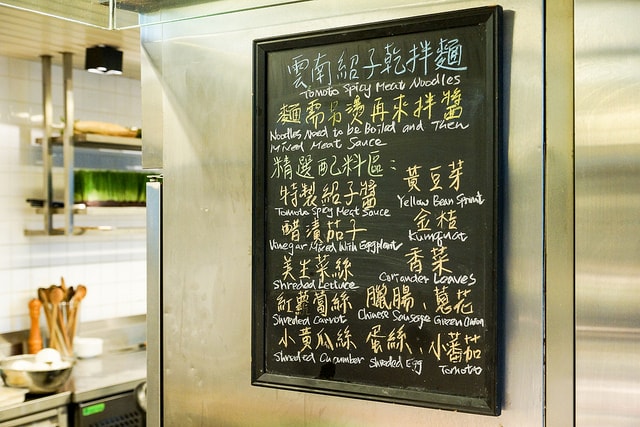 雲南紹子乾拌麵
Tomato Spicy Meat Noodles
麵需另燙再來拌醬
Noodles Need to be Boiled and Then
Mixed Meat Sauce
精選配料區：
特製紹子醬
Tomato Spicy Meat Sauce
黃豆芽
Yellow Bean Sprout
醋漬茄子
Vinegar Mixed With Eggplant
金桔
Kumquat
美生菜絲
Shreded Lettuce
香菜
Coriander Leaves
紅蘿蔔絲 臘腸、蔥花
Shreded Carrot Chinese Sausage Green Onion
小黃瓜絲 蛋絲、小蕃茄
Shreded Cucumber Shreded Egg Tomato